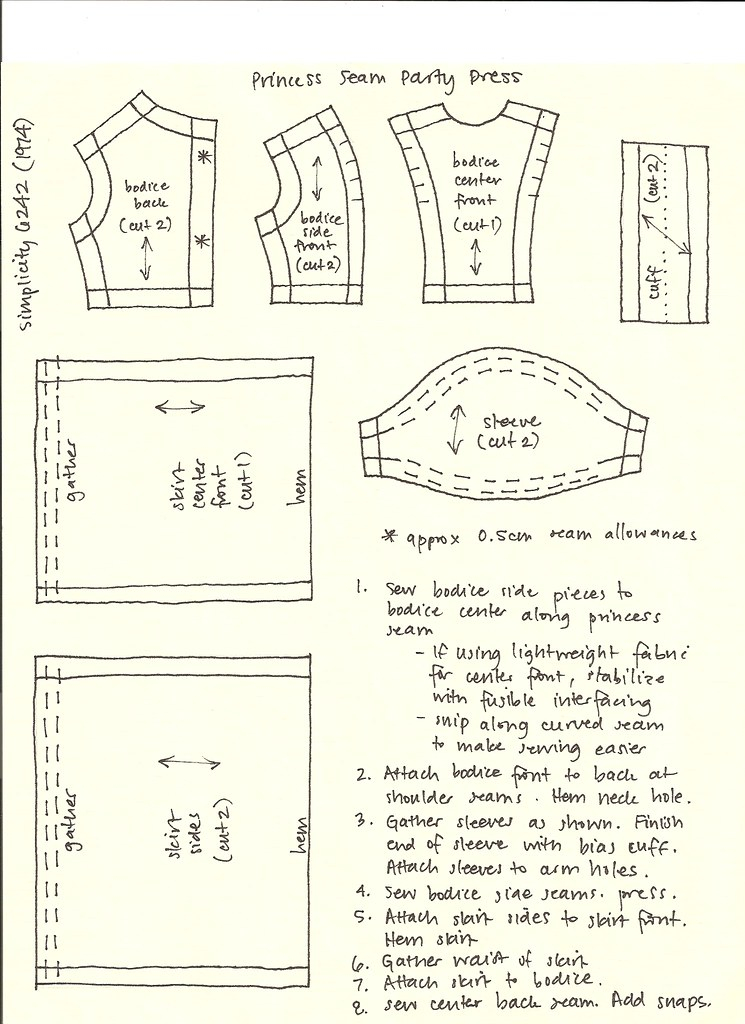 Princess Seam Party Dress
simplicity 6242 (1974)
bodice
back
(cut 2)
*
*
bodice
side
front
(cut 2)
bodice
center
front
(cut 1)
cuff (cut 2)
gather
skirt
center
front
(cut 1)
hem
sleeve
(cut 2)
* approx 0.5cm seam allowances
gather
skirt
sides
(cut 2)
hem
1. Sew bodice side pieces to
bodice center along princess
seam
- If using lightweight fabric
for center front, stabilize
with fusible interfacing
- snip along curved seam
to make sewing easier
2. Attach bodice front to back at
shoulder seams. Hem neck hole.
3. Gather sleeves as shown. Finish
end of sleeve with bias cuff.
Attach sleeves to arm holes.
4. Sew bodice side seams. press.
5. Attach skirt sides to skirt front.
Hem skirt
6. Gather waist of skirt
7. Attach skirt to bodice.
8. Sew center back seam. Add snaps.